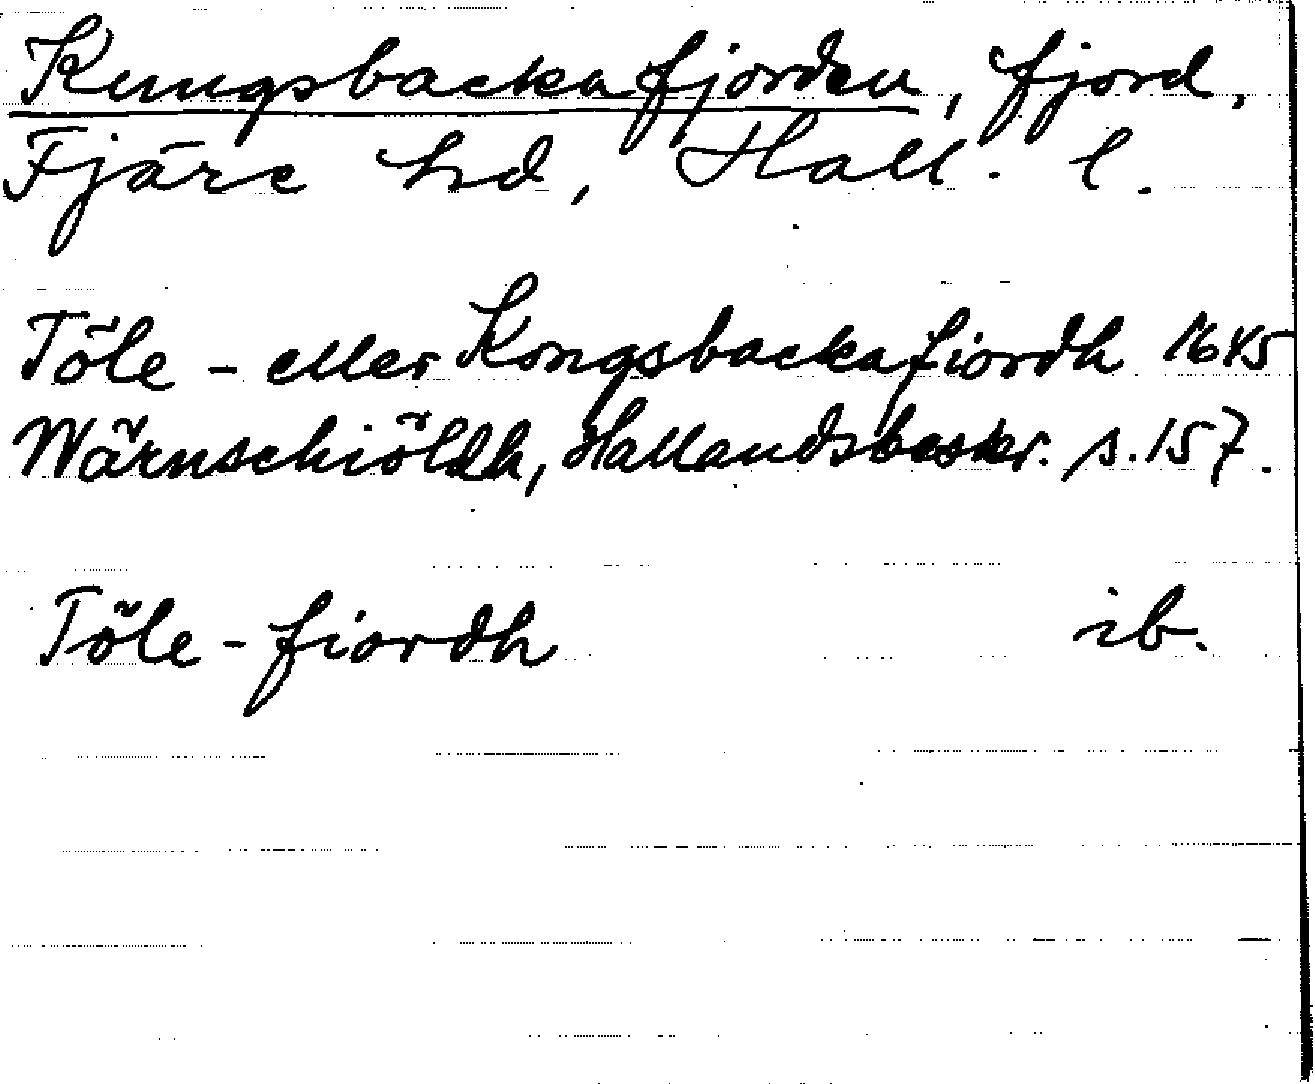 Kungsbackafjorden, fjord,
Fjäre hd, Hall. l.
Töle - eller Kongsbackafiordh 1645
Wärnschiöldh, Hallandsbeskr. s. 157.
Töle - fiordh ib.